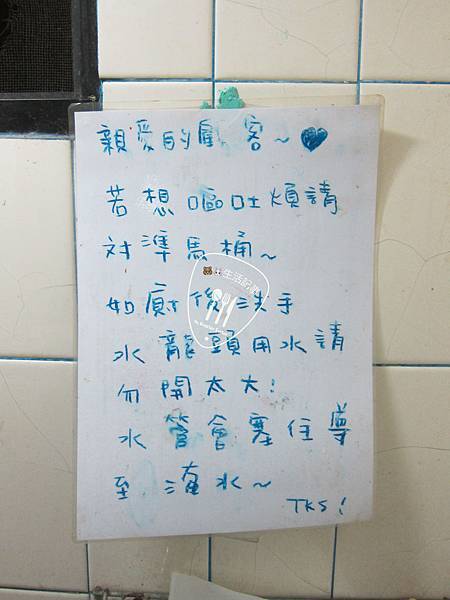 親愛的顧客~♥
若想嘔吐煩請
対準馬桶~
如廁後洗手
水龍頭用水請
勿開太大!
水管會塞住導
至淹水~
TKS!
生活記事